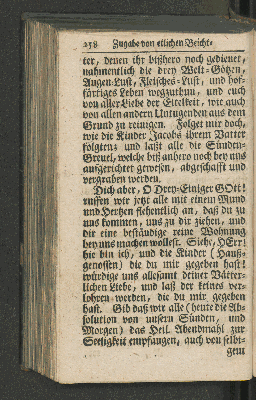 258 Zugabe von etlichen Beicht-
ter, denen ihr bißhero noch gedienet,
nahmentlich die drey Welt-Götzen,
Augen-Lust, Fleisches-Lust, und hof-
färtiges Leben wegzuthun, und euch
von aller Liebe der Eitelkeit, wie auch
von allen andern Untugenden aus dem
Grund zu reinigen. Folget mir doch,
wie die Kinder Jacobs ihrem Vatter
folgten; und laßt alle die Sünden-
Greuel, welche biß anhero noch bey uns
aufgerichtet gewesen, abgeschafft und
vergraben werden.
Dich aber, O Drey-Einiger GOtt!
ruffen wir jetzt alle mit einem Mund
und Hertzen flehentlich an, daß du zu
uns kommen, uns zu dir ziehen, und
dir eine beständige reine Wohnung
bey uns machen wollest. Siehe, HErr!
hie bin ich, und die Kinder (Hauß-
genossen) die du mir gegeben hast!
würdige uns allesamt deiner Vätter-
lichen Liebe, und laß der keines ver-
lohren werden, die du mir gegeben
hast. Gib daß wir alle (heute die Ab-
solution von unsern Sünden, und
Morgen) das Heil. Abendmahl zur
Seeligkeit empfangen, auch von selbi-
gem